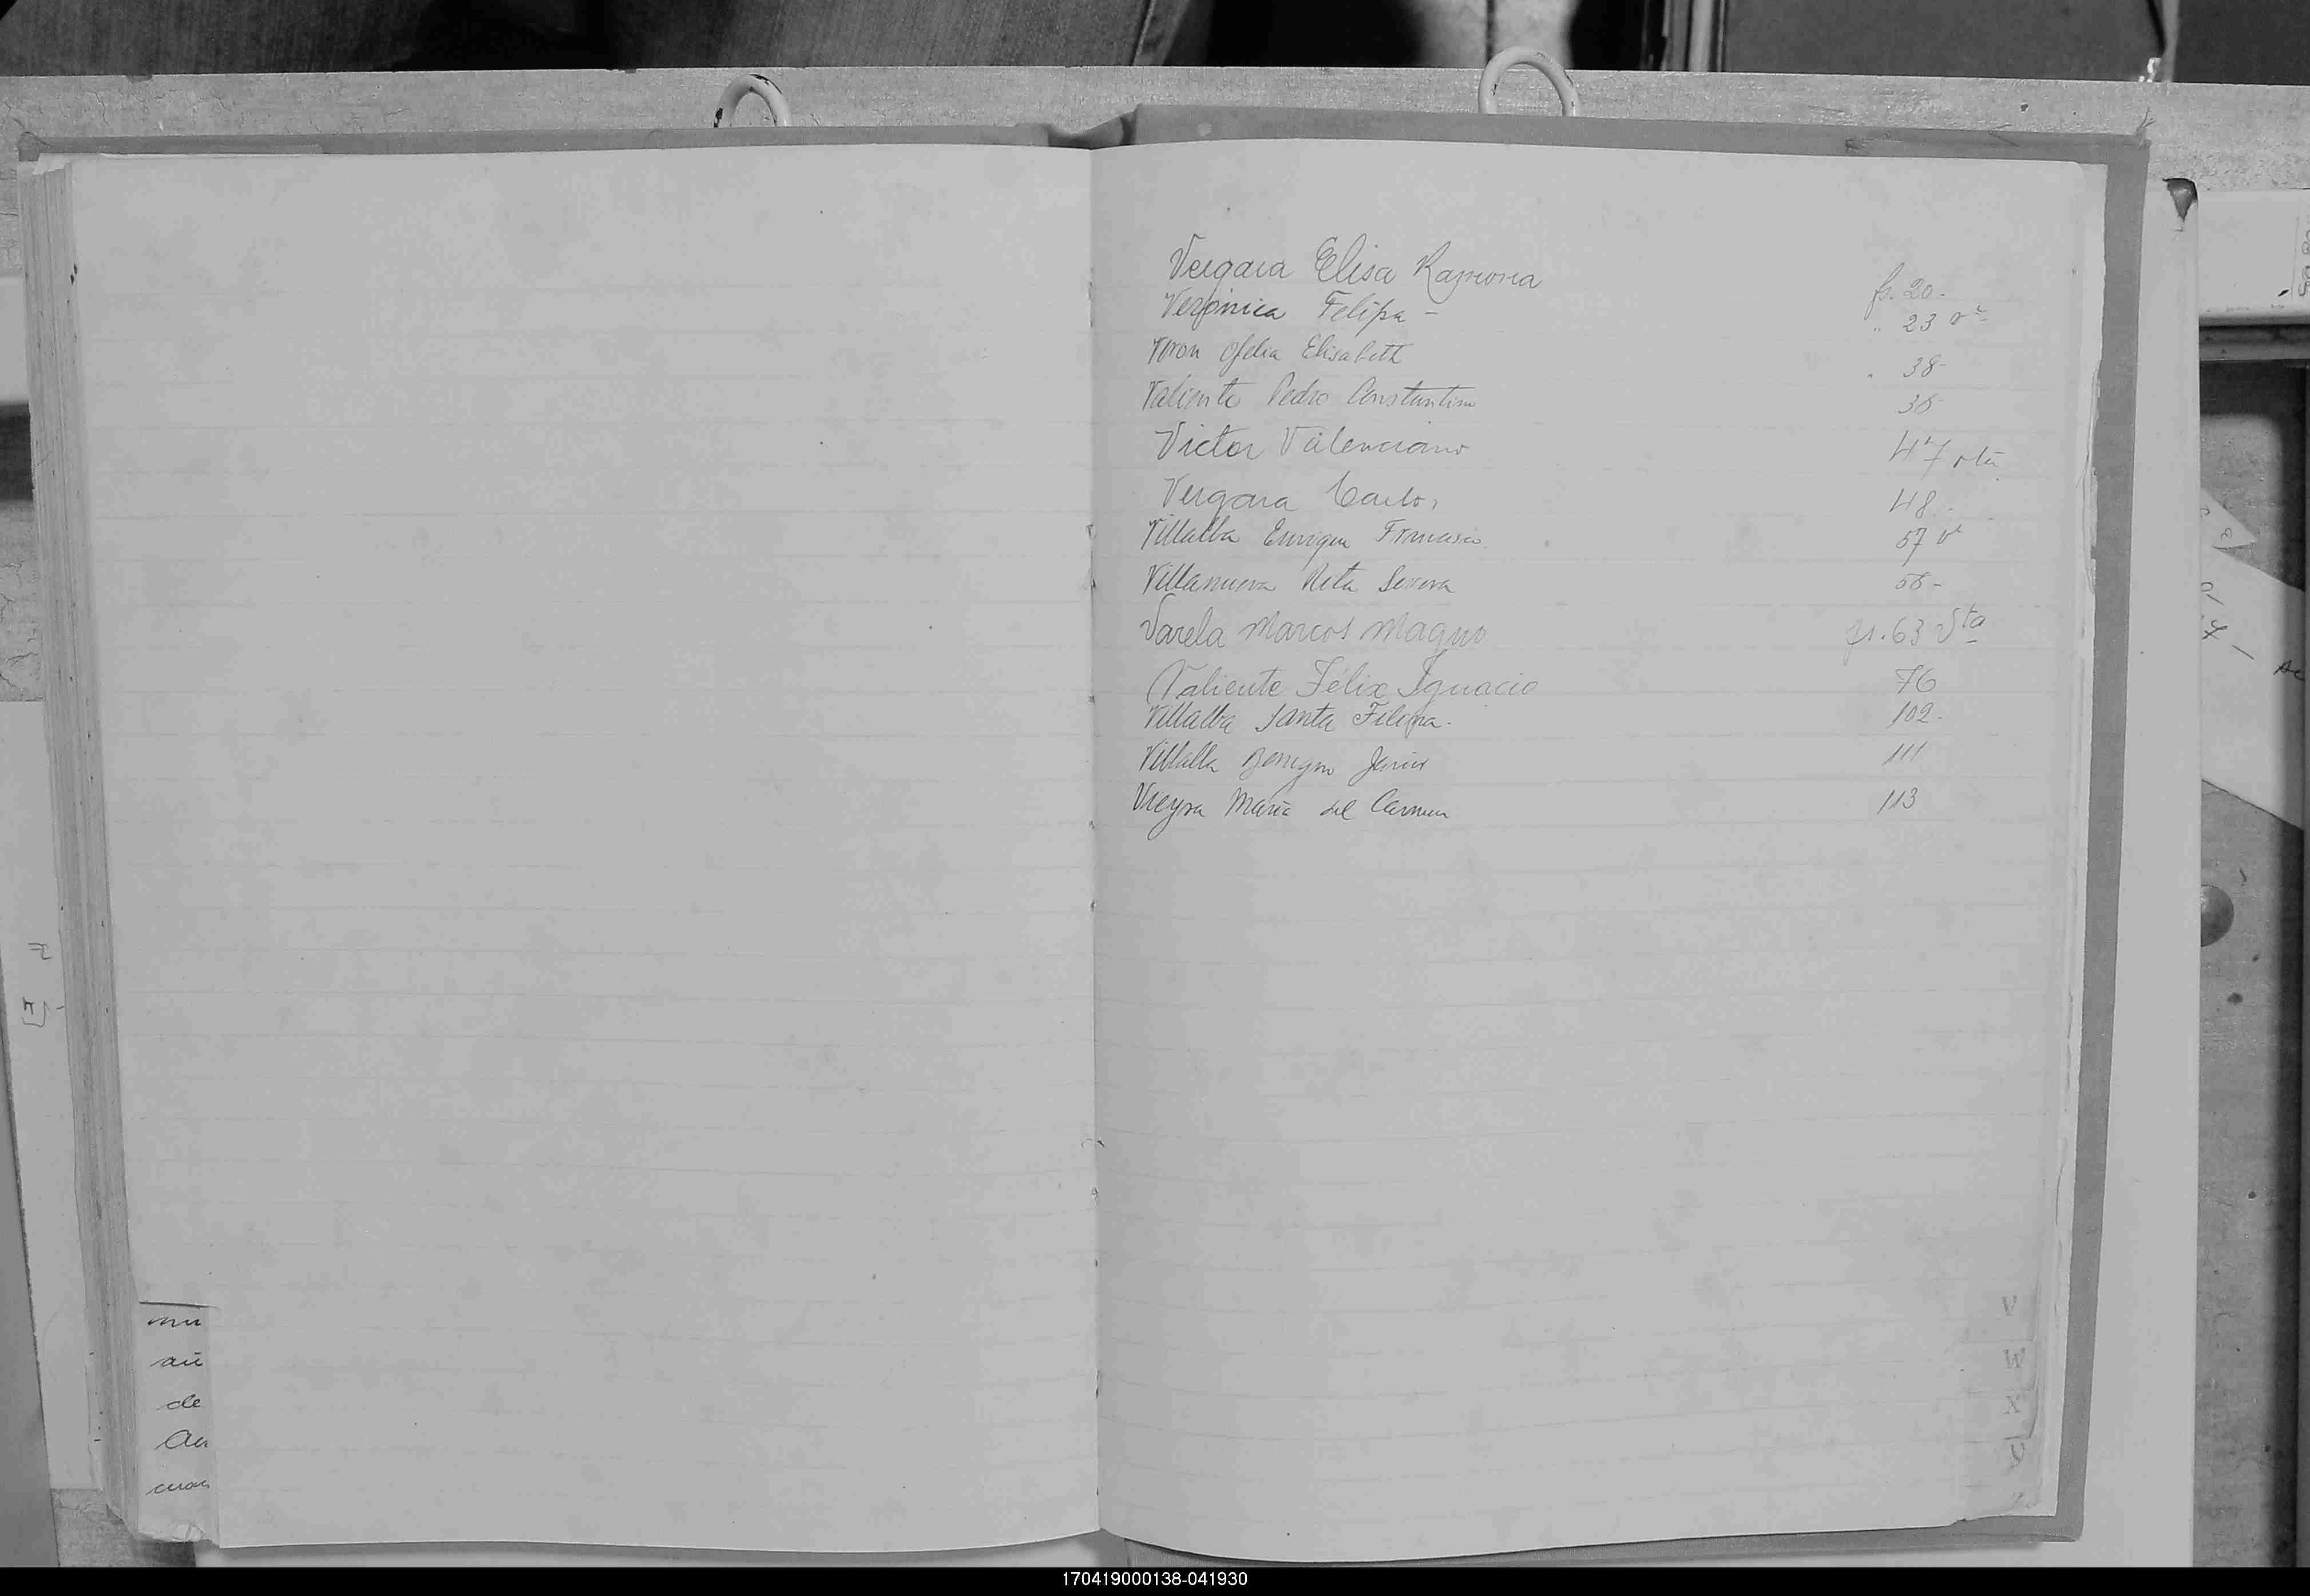 Vergara Elisa Ramona fs. 20-
Verónica Felipa - " 23 vta
Veron Ofelia Elisabeth " 38-
Valiente Pedro Constantino 38-
Victor Valenciano 47 vta
Vergara Carlos 48.-
Villalba Enrique 57 vta
Villanueva Rita 58-
Varela Marcos Magno fs. 63 Vta
Valiente Félix Ignacio 76
Villalba Santa Filipa. 102-
Villalba Benigno Javier 111
Vieyra María del Carmen 113
V
W
X
de
170419000138-041930